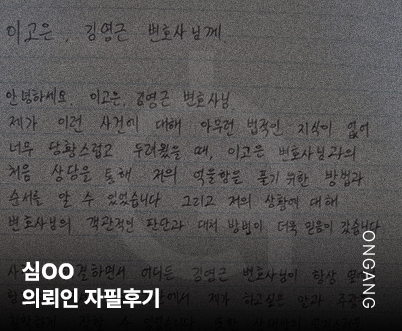 이고은, 김영근 변호사님께.
안녕하세요 이고은, 김영근 변호사님
제가 이런 사건에 대해 아무런 법적인 지식이 없어
너무 당황스럽고 두려웠을 때, 이고은 변호사님과의
처음 상담을 통해 저의 억울함을 풀기 위한 방법과
순서를 알 수 있었습니다 그리고 저의 상황에 대해
변호사님의 객관적인 판단과 대처 방법이 더욱 믿음이 갔습니다
하면서 어디든 김영근 변호사님이 항상
에서 제가 하고싶은 말과
심OO
의뢰인 자필후기
ONGANG